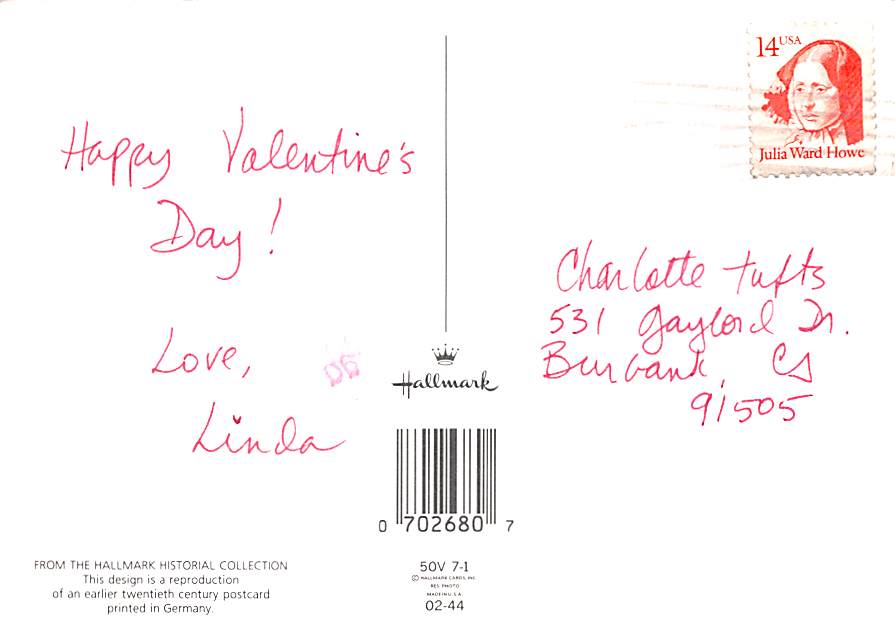 Happy Valentine's
Day!
Love,
Linda
14 USA
Julia Ward Howe
Charlotte Tufts
531 Gaylord Dr.
Burbank, CA
91505
Hallmark
0 702680 7
FROM THE HALLMARK HISTORIAL COLLECTION
This design is a reproduction
of an earlier twentieth century postcard
printed in Germany.
50V 7-1
© HALLMARK CARDS, INC.
RES. PHOTO
MADE IN U.S.A.
02-44